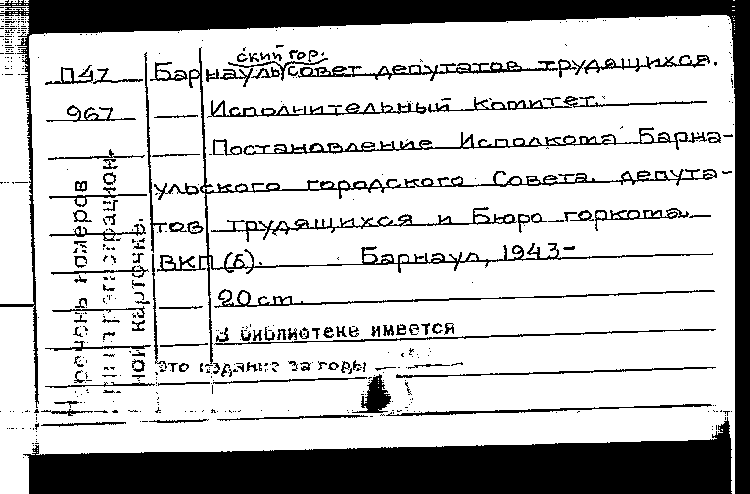 ский гор.
П47 Барнаульсовет депутатов трудящихся.
967 Исполнительный комитет.
Постановление Исполкома Барна-
ульского городского Совета депута-
тов трудящихся и Бюро горкома
ВКП(б). Барнаул, 1943-
20 cm.
В библиотеке имеется
это издание за годы
Перечень номеров
на регистрацион-
ной карточке.